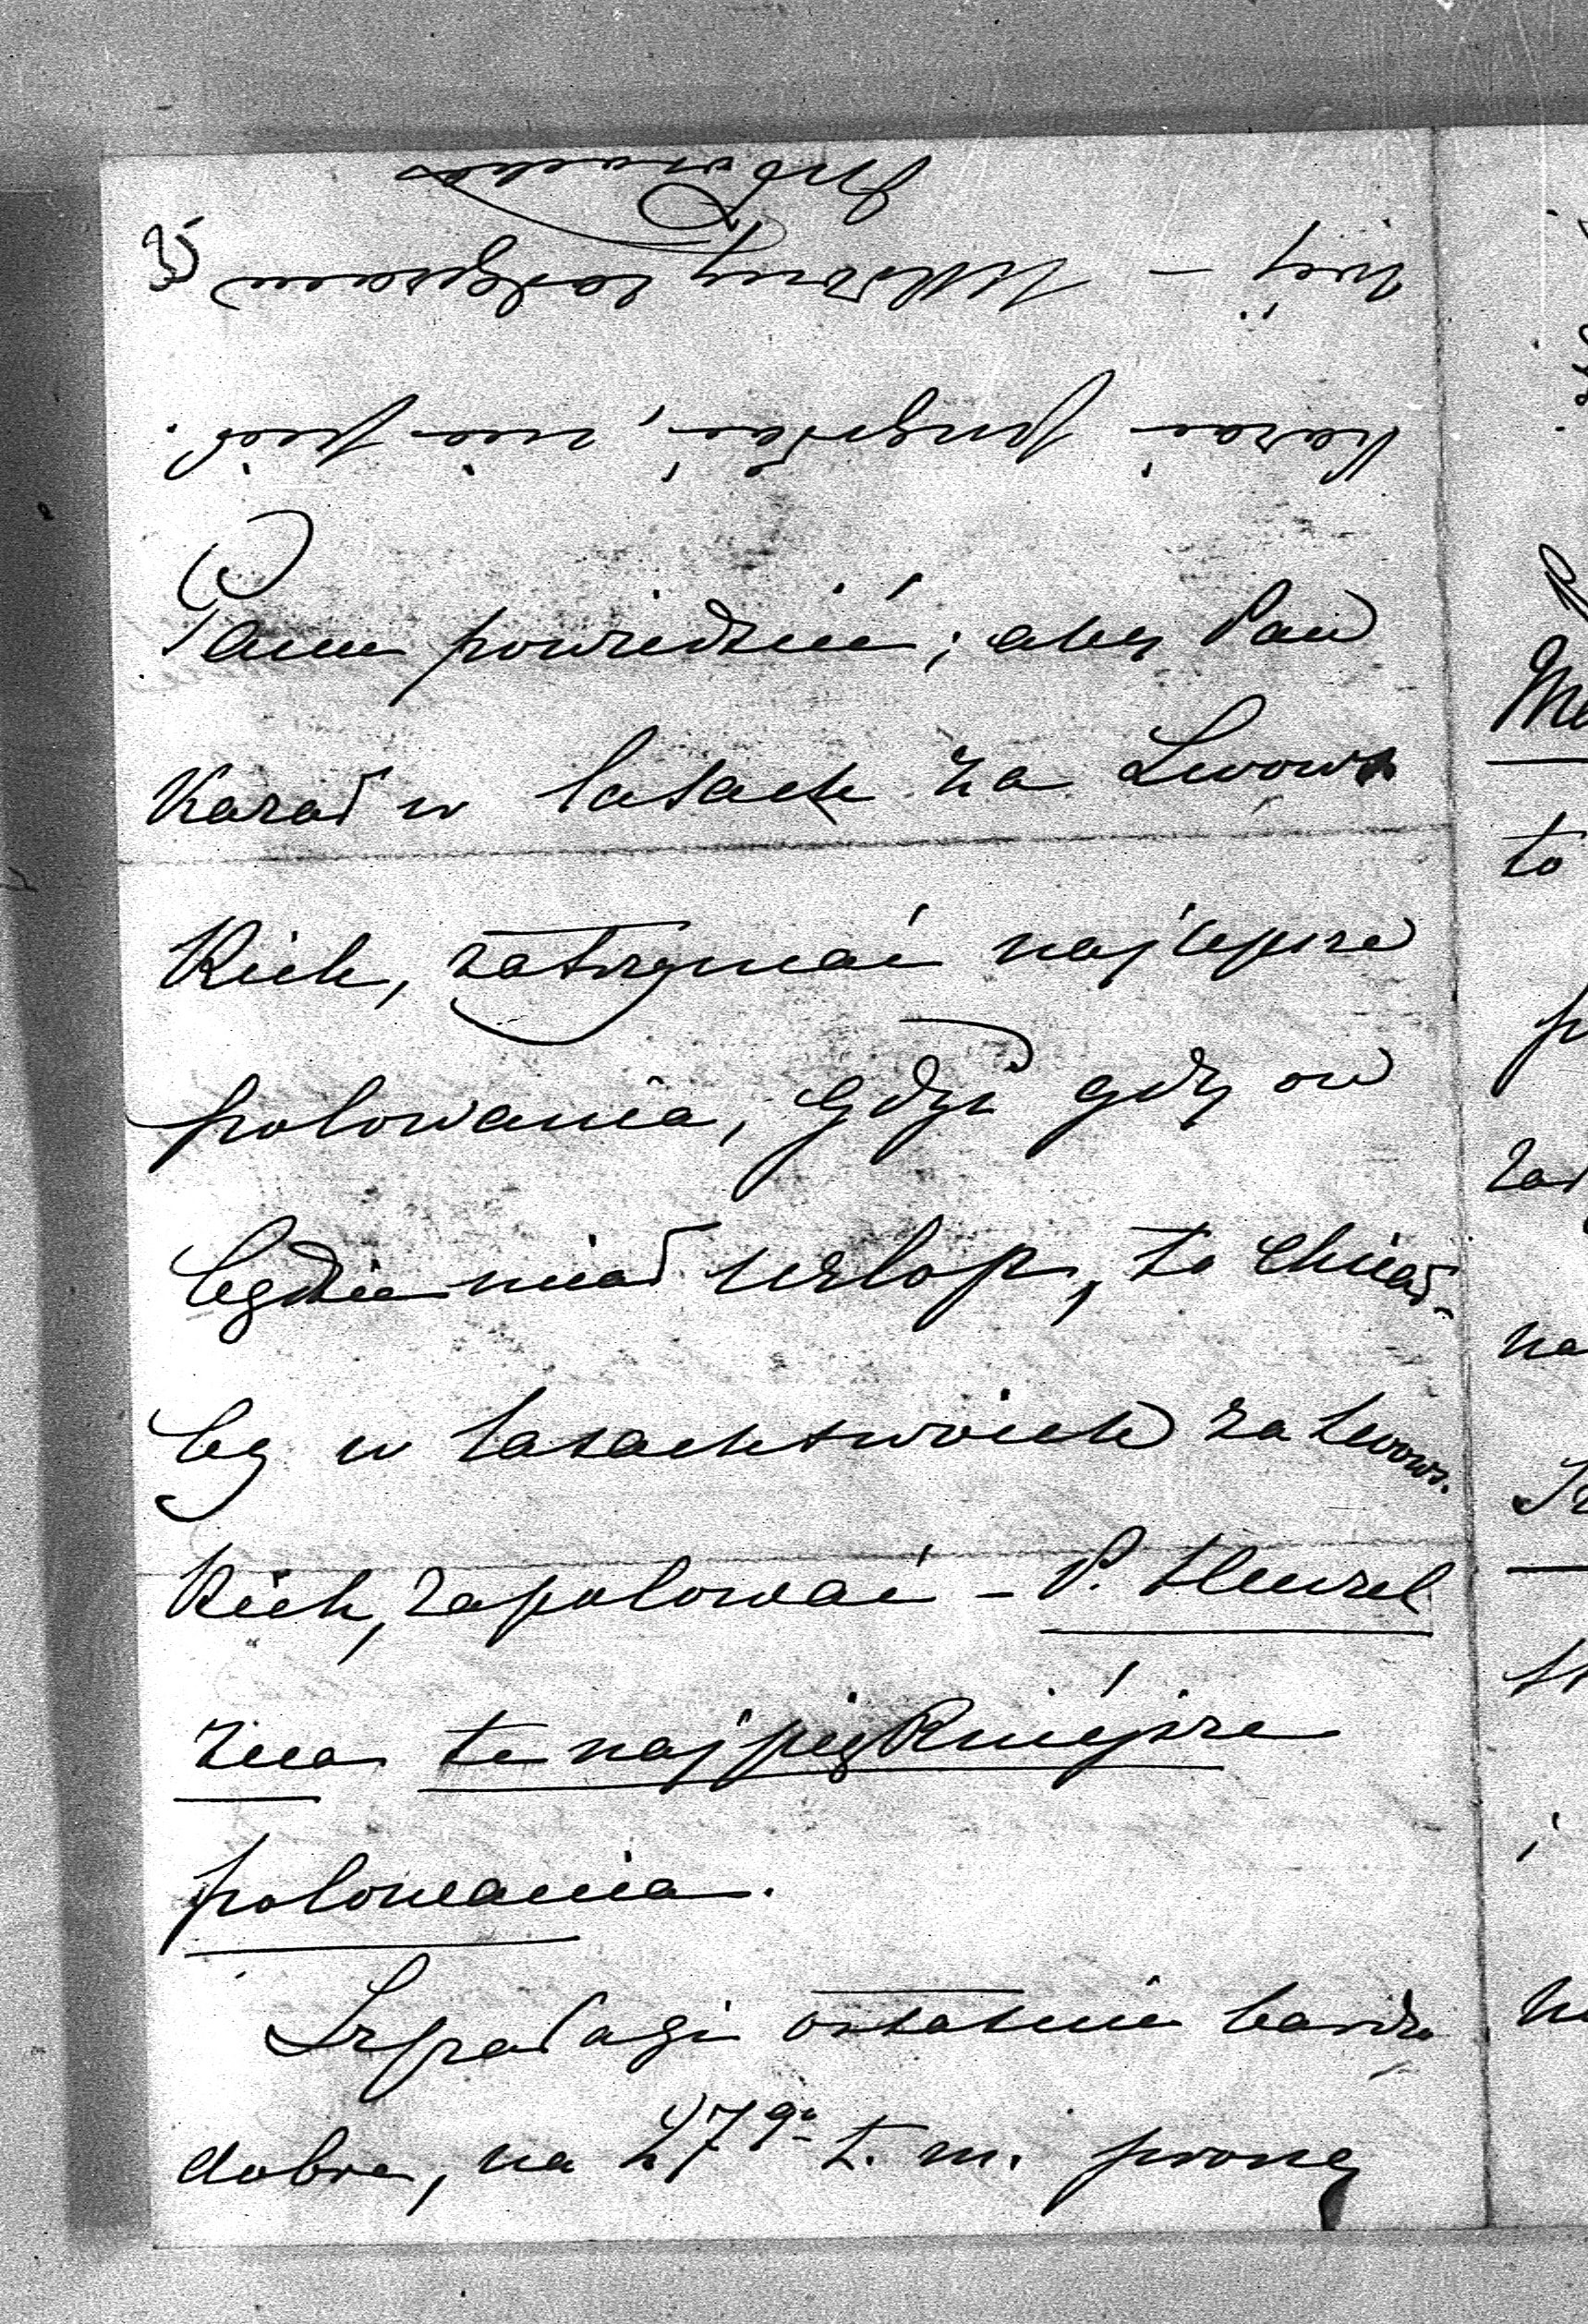 Panu powiedzieć, aby Pan
Kazał w lasach za Lwows
kich, zatrzymać najlepsze
polowania, gdyż gdy on
będzie miał urlop, to chciał-
by w lasach swoich za Lwows.
kich, zapolować – P. Henzel
zna te najpiękniéjsze
polowania.
Szpalagi ostatnie bardzo
dobre, na 27go t. m. proszę
kazać przysłać, nie póź.
niéj –